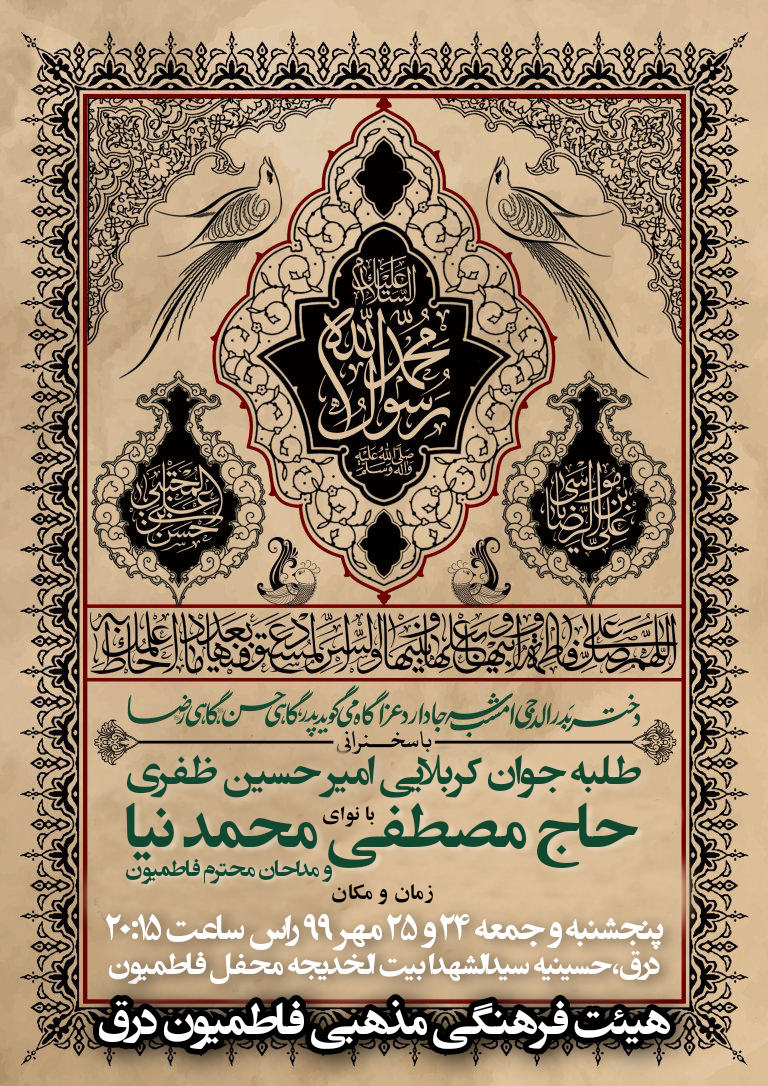 السلام علیک
محمد رسول الله
صلی الله علیه وآله وسلم
علی بن موسی الرضا
الحسن بن علی المجتبی
اللهم صل علی فاطمة و ابیها و بعلها و بنیها والسر المستودع فیها بعدد ما احاط به علمک
دختر بدرالدجی امشب سه جا دارد عزا گاه می گوید پدر گاهی حسن گاهی رضا
با سخنرانی
طلبه جوان کربلایی امیرحسین ظفری
با نوای
حاج مصطفی محمدنیا
و مداحان محترم فاطمیون
زمان و مکان
پنجشنبه و جمعه ۲۴ و ۲۵ مهر ۹۹ راس ساعت ۲۰:۱۵
درق،حسینیه سیدالشهدا بیت الخدیجه محفل فاطمیون
هیئت فرهنگی مذهبی فاطمیون درق